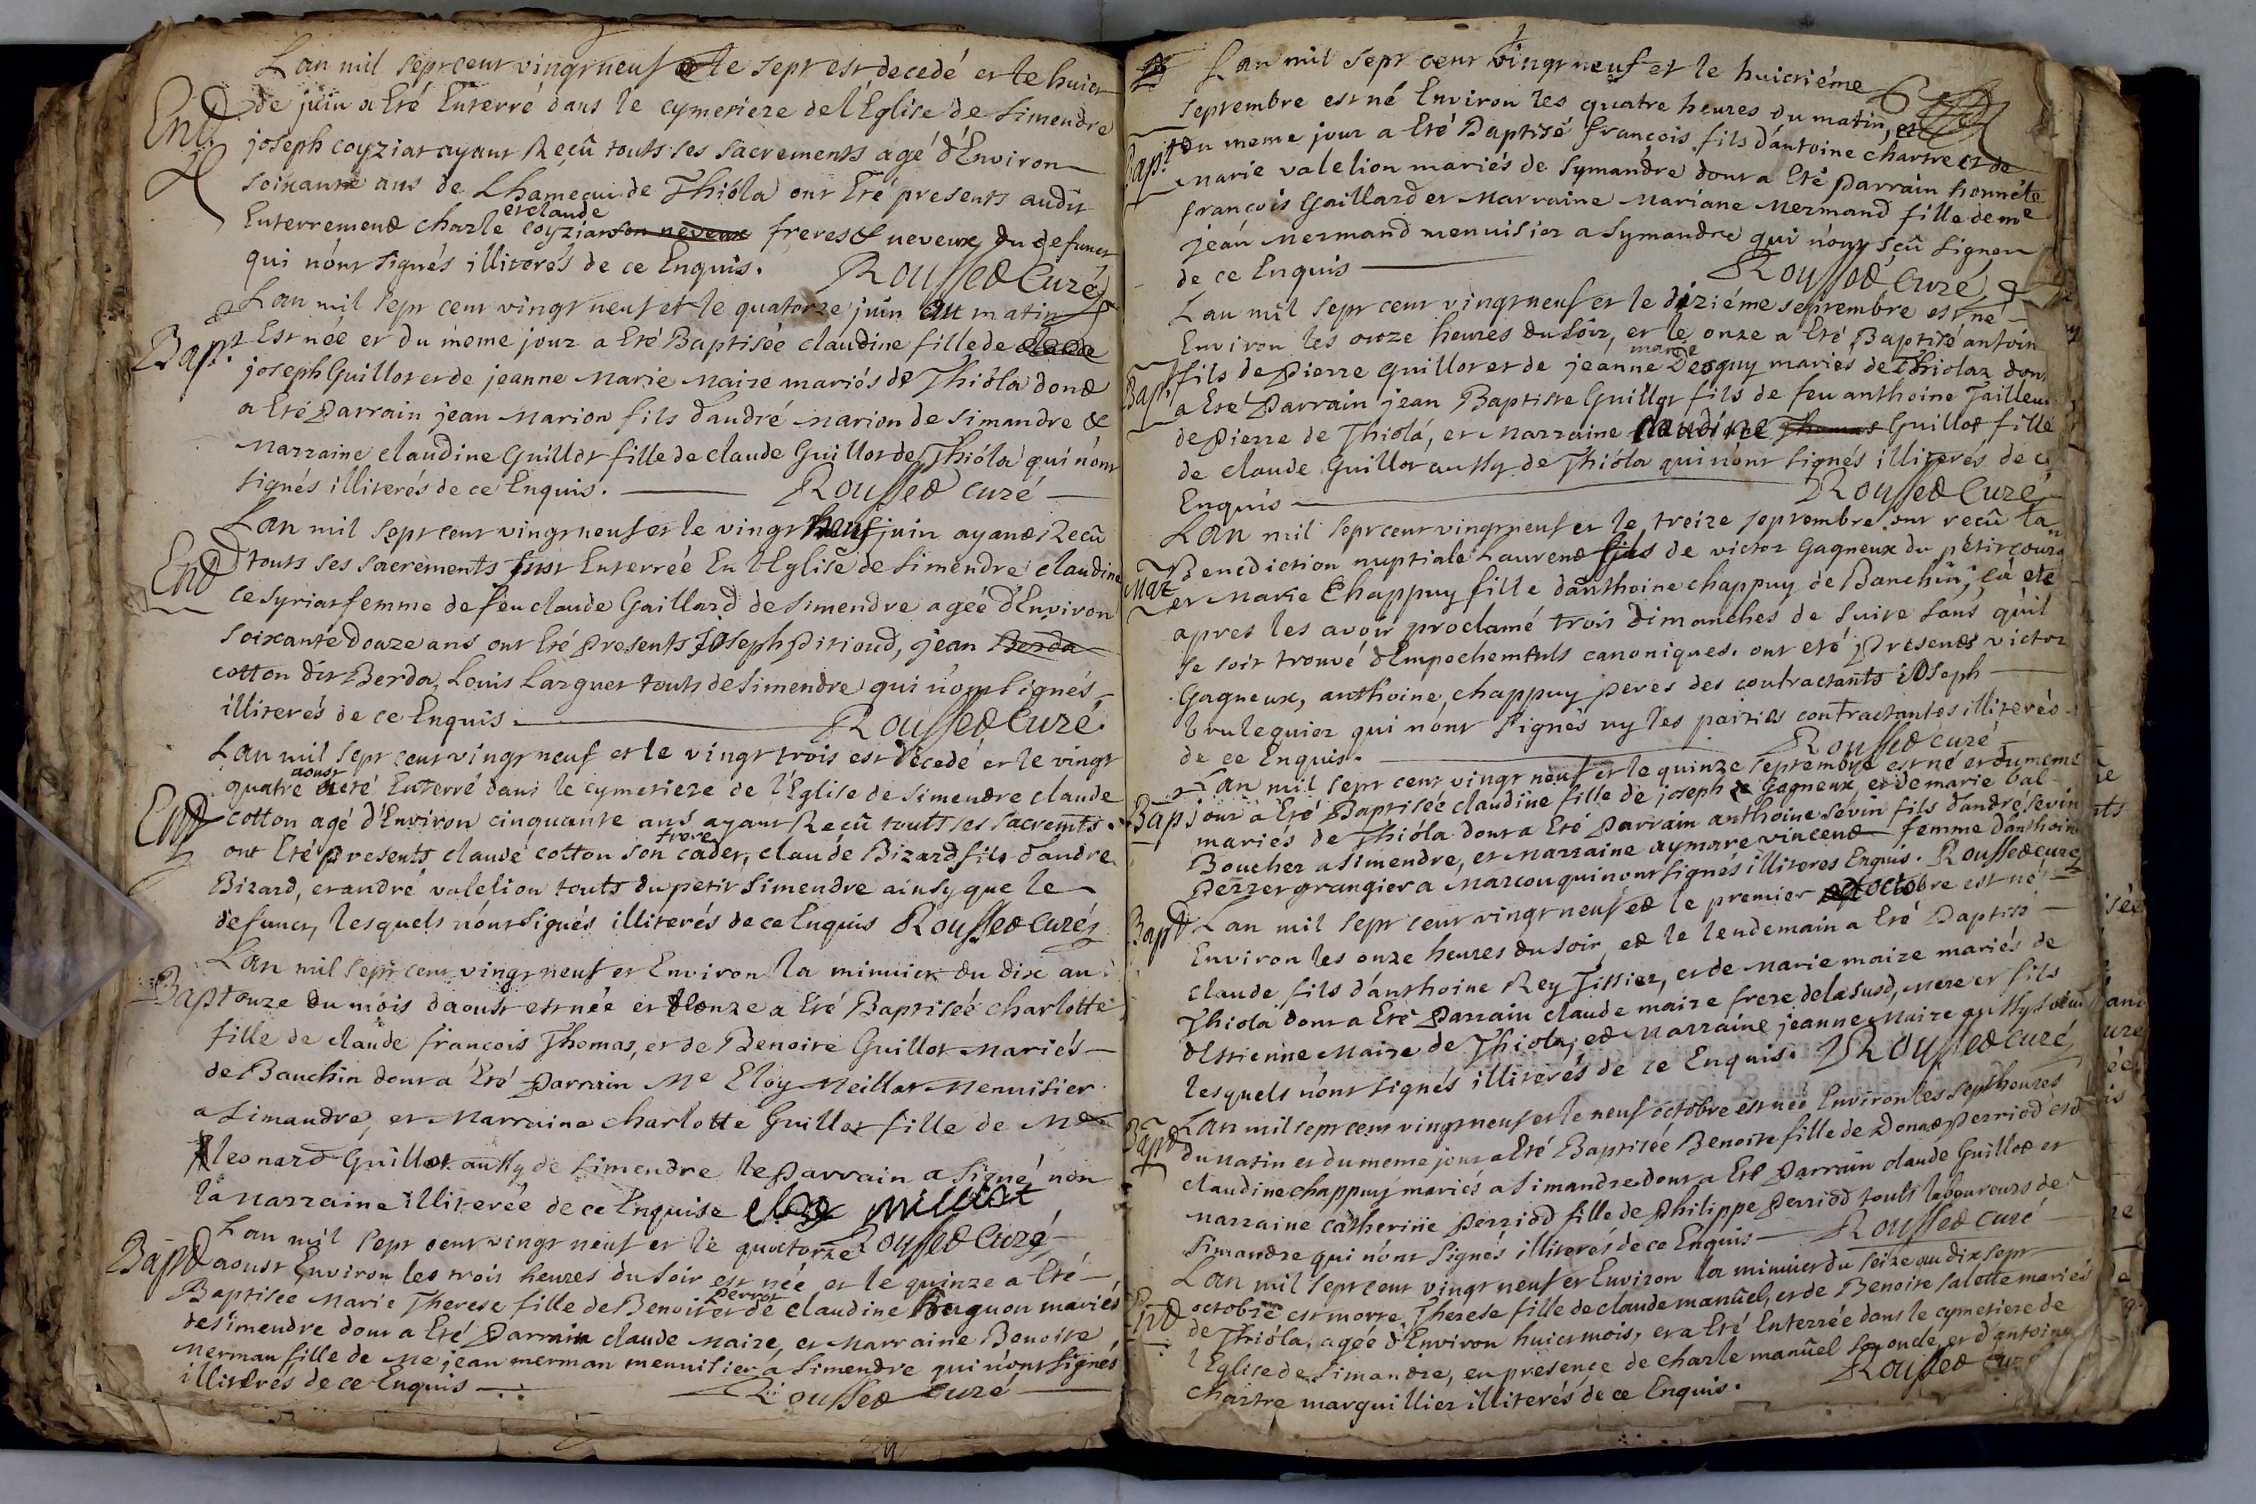 Lan mil sept cent vingt neuf et le sept est decedé et le huict
Ent
de juin a Eté Enterré dans le cymetiere de l'Eglise de Simendre
joseph coyziat ayant Reçû touts ses sacrements agé d'Environ
soixante ans de Lhameau de Thióla ont Eté presents audit
et claude
Enterrement charle coyziat son neveux freres & neveux du defunct
qui n'ont signés illiterés de ce Enquis. Rousset Curé
Lan mil sept cent vingt neuf et le quatorze juin au matin
Bapt Est née et du méme jour a Eté Baptiséé claudine fille de claude
joseph Guillot et de jeanne Marie Maire mariés de Thióla dont
a Eté Parrain jean Marion fils d'andré Marion de simandre &
Marraine claudine Guillot fille de claude Guillot de Thióla qui n'ont
signés illiterés de ce Enquis. Rousset curé
Lan mil sept cent vingt neuf et le vingt neuf juin ayant Reçû
Ent
touts ses sacrements fust Enterréé En l'Eglise de Simendre claudine
Cesyriat femme de feu claude Gaillard de Simendre agéé d'Environ
soixante douze ans ont Eté presents joseph Pitioud, jean Berda
cotton dit Berda, Louis Larguet touts de Simendre qui n'ont signés
illiterés de ce Enquis. Rousset Curé.
Lan mil sept cent vingt neuf et le vingt trois est decedé et le vingt
aoust
quatre a eté Enterré dans le cymetiere de l'Eglise de Simendre claude
Ent
cotton agé d'Environ cinquante ans ayant Reçû touts ses sacremts.
frere
ont Eté presents claude cotton son cadet, claude Bizard fils d'andre
Bizard, et andré valelion touts du petit Simendre ainsy que le
defunct, lesquels n'ont signés illiterés de ce Enquis Rousset Curé
Lan mil sept cent vingt neuf et Environ la minuict du dix au
Bapt
onze du mois d'aoust est née et le onze a Eté Baptiséé charlotte
fille de claude francois Thomas, et de Benoite Guillot Mariés
de Banchin dont a Eté Parrain Me Eloy Meillat Menuisier
a Simandre, et Marraine charlotte Guillot fille de Me
leonard Guillot aussy de simendre le Parrain a signé non
la Marraine illiteréé de ce Enquise
Lan mil sept cent vingt neuf et le quatorze Rousset Curé
Bapt
aoust Environ les trois heures du soir est néé et le quinze a Eté
perrot
Baptisee Marie Therese fille de Benoit et de claudine huguon mariés
de Simendre dont a Eté Parrain claude Maire, et Marraine Benoite
Merman fille de Me jean merman menuisier a Simendre qui n'ont signés
illiterés de ce Enquis Rousset Curé
Lan mil sept cent vingt neuf et le huictiéme
septembre est né Environ les quatre heures du matin, et
Bapt
du meme jour a Eté Baptisé françois fils d'antoine chartre et de
Marie valelion mariés de Symandre dont a Eté Parrain honnéte
françois Gaillard et Marraine Mariane Mermand fille de me
jean Mermand menuisier a Symandre qui n'ont sçû signer
de ce Enquis Rousset Curé
Lan mil sept cent vingt neuf et le diziéme septembre est né
Environ les onze heures du soir, et le onze a Eté Baptisé antoin
marie
Bapt
fils de Pierre Guillot et de jeanne Desguy mariés de Thiolaz dont
a Eté Parrain jean Baptiste Guillot fils de feu anthoine Tailleur
de Pierre de Thiolá, et Marraine claudine Thomas Guillot fille
de claude Guillot aussy de Thióla qui n'ont signés illiterés de ce
Enquis Rousset Curé
Lan mil sept cent vingt neuf et le treize septembre ont reçû la
Mar
Benediction nuptiale Laurent fils de victor Gagneux du petit cour
et Marie Chappuy fille d'anthoine chappuy de Banchin, ça eté
apres les avoir proclamé trois Dimanches de suite sans qu'il
se soit trouvé d'Empechements canoniques. ont eté Presents victor
Gagneux, anthoine chappuy peres des contractants joseph
bruleguier qui n'ont signés ny les parties contractantes illiterés
de ce Enquis. Rousset curé
Lan mil sept cent vingt neuf et le quinze septembre est né et du meme
Bap
jour a Eté Baptisée claudine fille de joseph Gagneux, et de marie bal
mariés de Thióla dont a Eté Parrain anthoine sevin fils d'andre sevin
Boucher a Simendre, et Marraine aymare vincent femme d'anthoine
Perret grangier a Marcou qui n'ont signés illiteres Enquis. Rousset curé
Bapt
Lan mil sept cent vingt neuf et le premier octobre est né
Environ les onze heures du soir, et le lendemain a Eté Baptisé
claude fils d'anthoine Rey Tissier, et de Marie maire mariés de
Thiola dont a Eté Parrain claude maire frere de la susd, mere et fils
d'Estienne Maire de Thiola, et Marraine jeanne Maire aussy
lesquels n'ont signés illiterés de ce Enquis. Rousset curé
Lan mil sept cent vingt neuf et le neuf octobre est née Environ les sept heures
Bapt
du Matin et du meme jour a Eté Baptiséé Benoite fille de Donat Perriod et de
claudine chappuy mariés a Simandre dont a Eté Parrain claude Guillot et
marraine catherine Perriod fille de Philippe Perriod touts laboureurs de
Simandre qui n'ont signés illiterés de ce Enquis Rousset curé
Lan mil sept cent vingt neuf et Environ la minuict du seize au dix sept
Ent
octobre est morte Therese fille de claude manûel, et de Benoite salotte mariés
de Thióla, agée d'Environ huict mois, et a Eté Enterréé dans le cymetiere de
l'Eglise de Simandre, en presence de charle manûel son oncle, et d'antoine
chartre marguillier illiterés de ce Enquis. Rousset curé